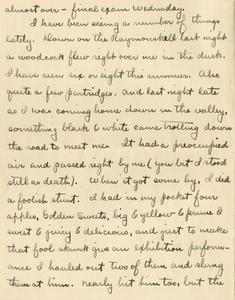 almost over - final exam Wednesday.
I have been seeing a number of things
lately. Down on the Raymondskill last night
a woodcock flew right over me in the dusk.
I have seen six or eight this summer. Also
quite a few partridges. And last night late
as I was coming home down in the valley,
something black & white came trotting down
the road to meet me. It had a preoccupied
air and passed right by me (you bet I stood
still as death). When it got some by, I did
a foolish stunt. I had in my pocket four
apples, Golden Sweets, big & yellow & prime &
sweet & juicy & delicious, and just to make
that fool skunk give an exhibition perform-
ance I hauled out two of them and slung
them at him. nearly hit him too, but the